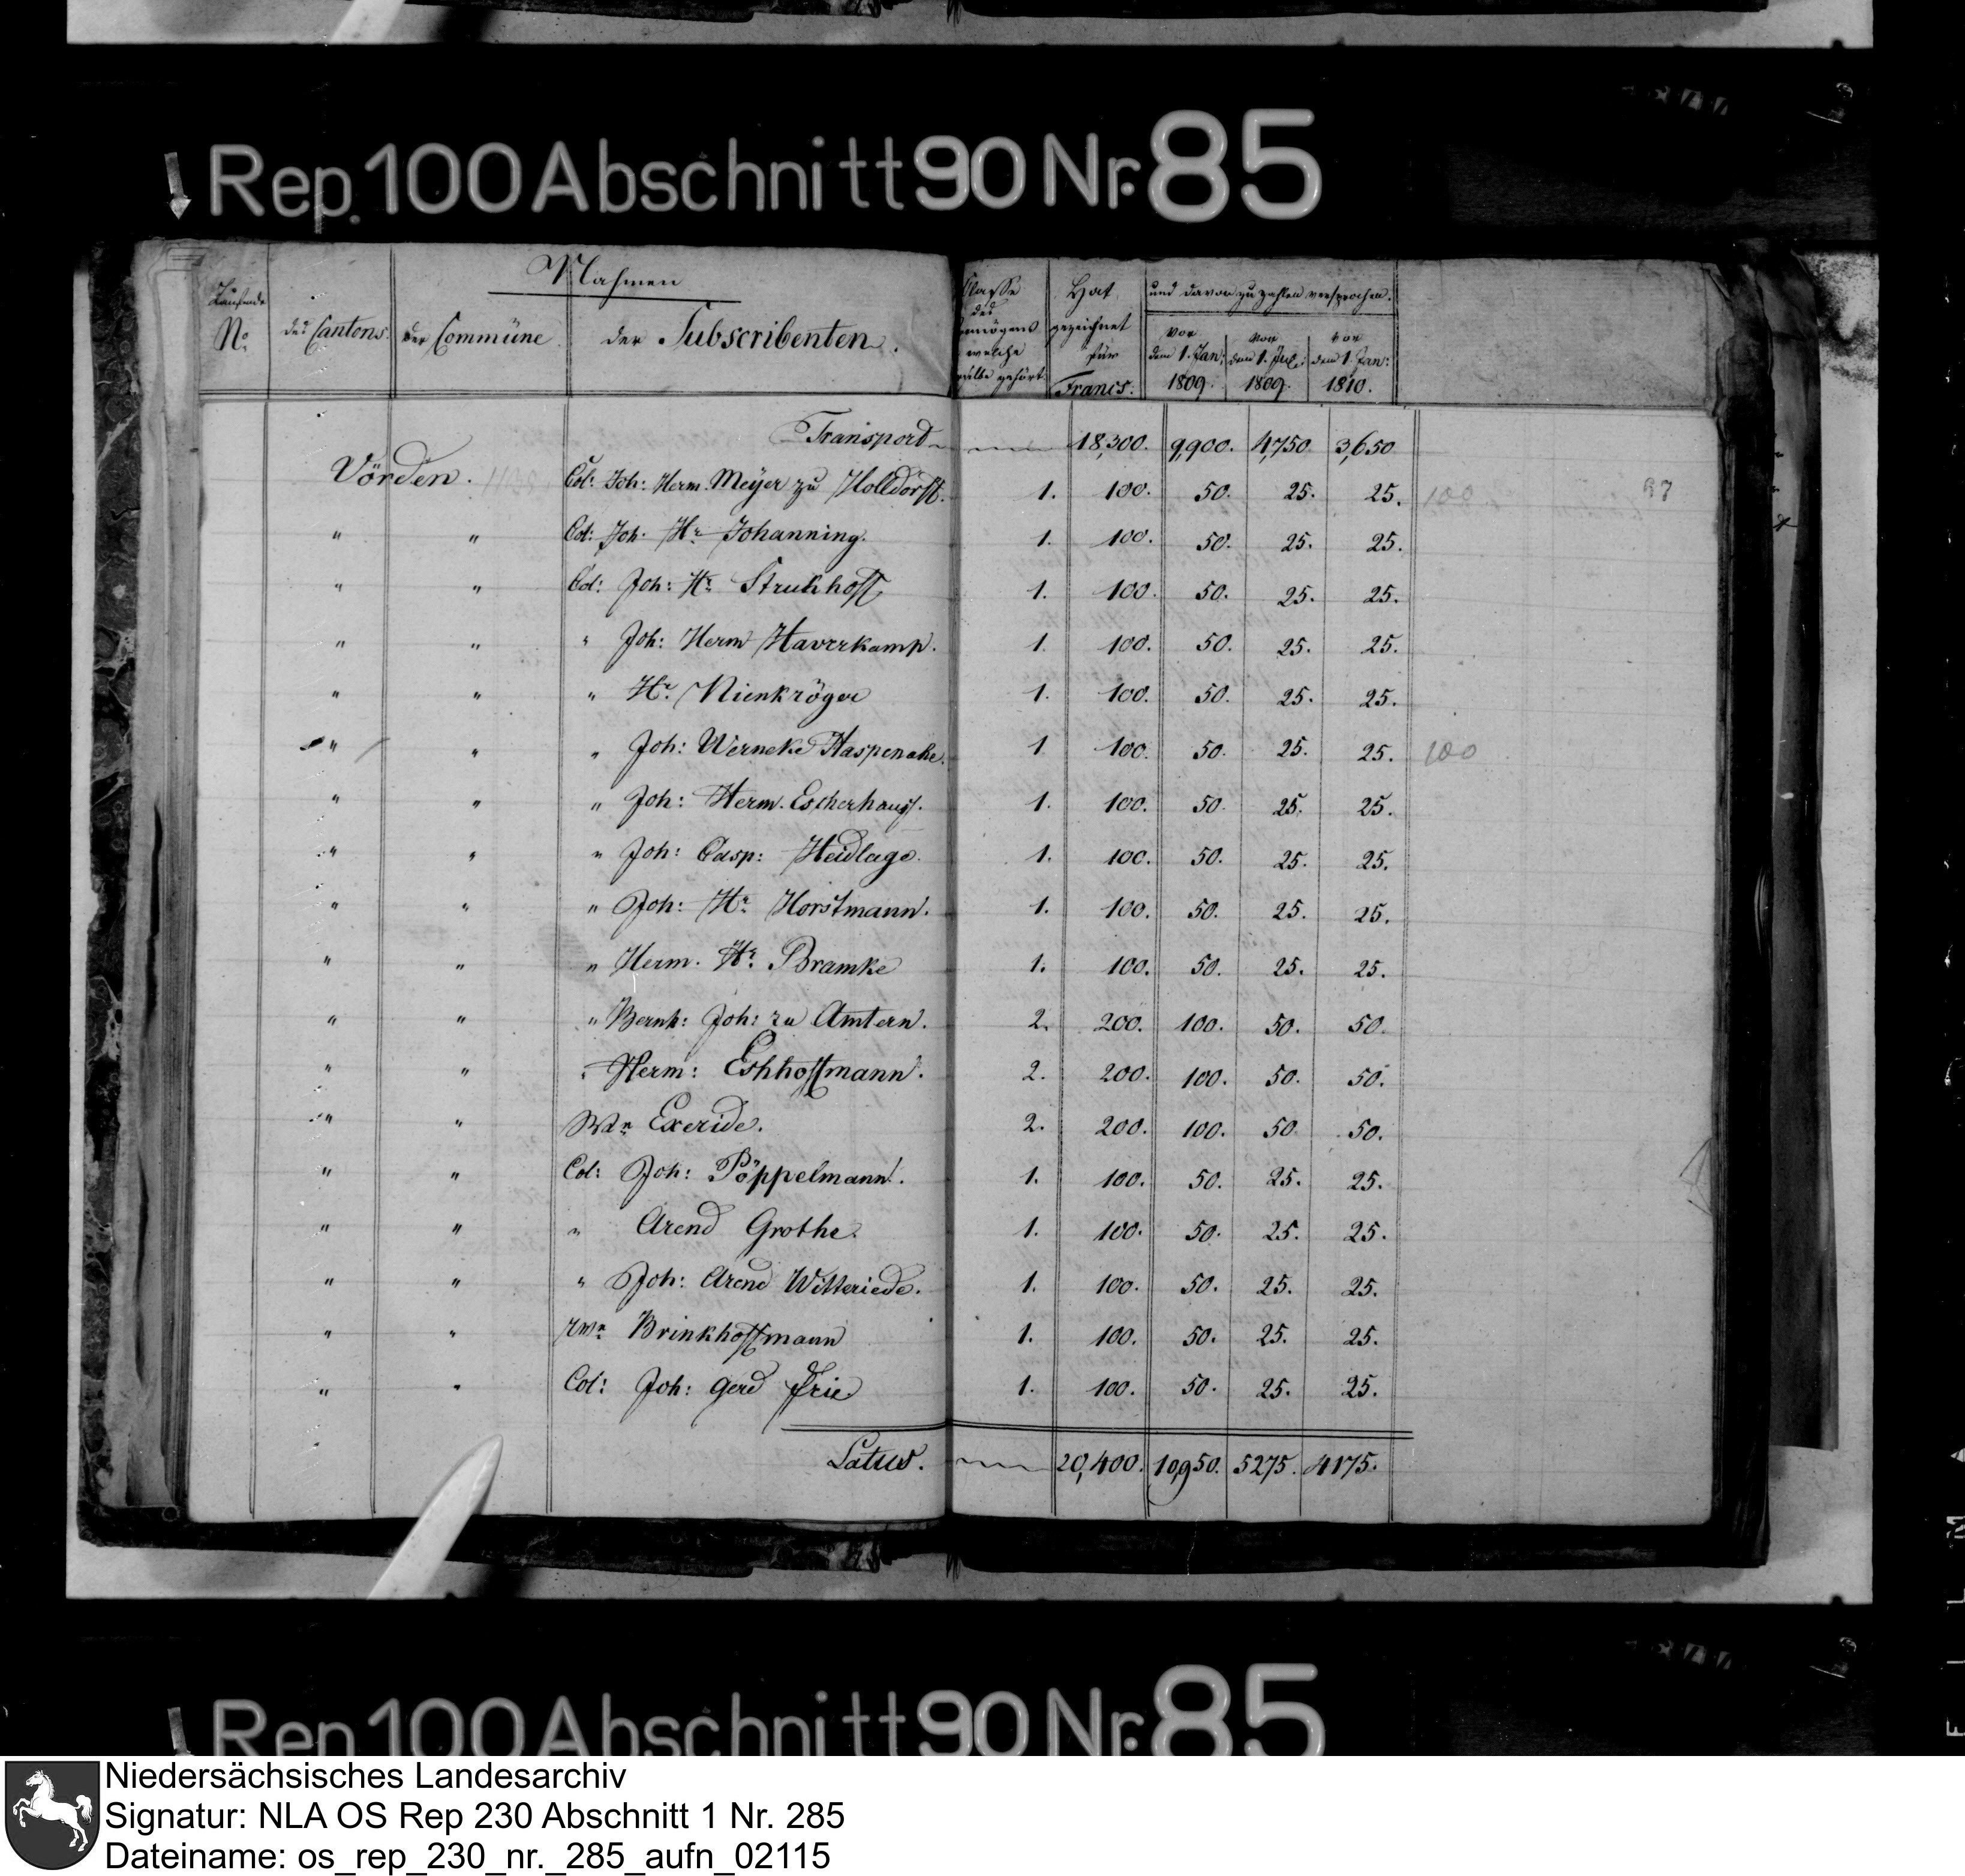 Rep. 100 Abschnitt 90 Nr. 85
Nahmen
Laufende No.
des Cantons.
der Commüne
der Subscribenten.
Classe des Vermögens welche selbe gehört
Hat gezeichnet für Francs.
und davon zu zahlen versprochen.
vor dem 1. Jan: 1809.
vor dem 1. Jul: 1809.
vor dem 1. Jan: 1810.
Transport 18,300. 9,900. 4,750. 3,650
Vörden. Col: Joh: Herm. Meÿer zu Holldorff. 1. 100. 50. 25. 25. 100 97
" " Col: Joh. Hr. Johanning. 1. 100. 50. 25. 25.
" " Col: Joh: Hr. Strukhoff 1. 100. 50. 25. 25.
" " " Joh: Herm Haverkamp. 1. 100. 50. 25. 25.
" " " Hr. Nienkröger 1. 100. 50. 25. 25.
" " " Joh: Werneke Haspenake. 1 100. 50. 25. 25. 100
" " " Joh: Herm. Escherhauss. 1. 100. 50. 25. 25.
" " " Joh: Casp: Heidlage. 1. 100. 50. 25. 25.
" " " Joh: Hr. Horstmann. 1. 100. 50. 25. 25.
" " " Herm. Hr. Bramke 1. 100. 50. 25. 25.
" " " Bernh: Joh: zu Amtern. 2. 200. 100. 50. 50.
" " " Herm: Eshhoffmann. 2. 200. 100. 50. 50.
" " Wwe. Exeride. 2. 200. 100. 50. 50.
" " Col: Joh: Pöppelmann. 1. 100. 50. 25. 25.
" " " Arend Grothe. 1. 100. 50. 25. 25.
" " " Joh: Arend Witteriede. 1. 100. 50. 25. 25.
" " Wwe. Brinkhoffmann 1. 100. 50. 25. 25.
" " Col: Joh: Gerd Frie 1. 100. 50. 25. 25.
Latus. 20,400. 10,950. 5275. 4175.
Rep 100 Abschnitt 90 Nr. 85
Niedersächsisches Landesarchiv
Signatur: NLA OS Rep 230 Abschnitt 1 Nr. 285
Dateiname: os_rep_230_nr._285_aufn_02115